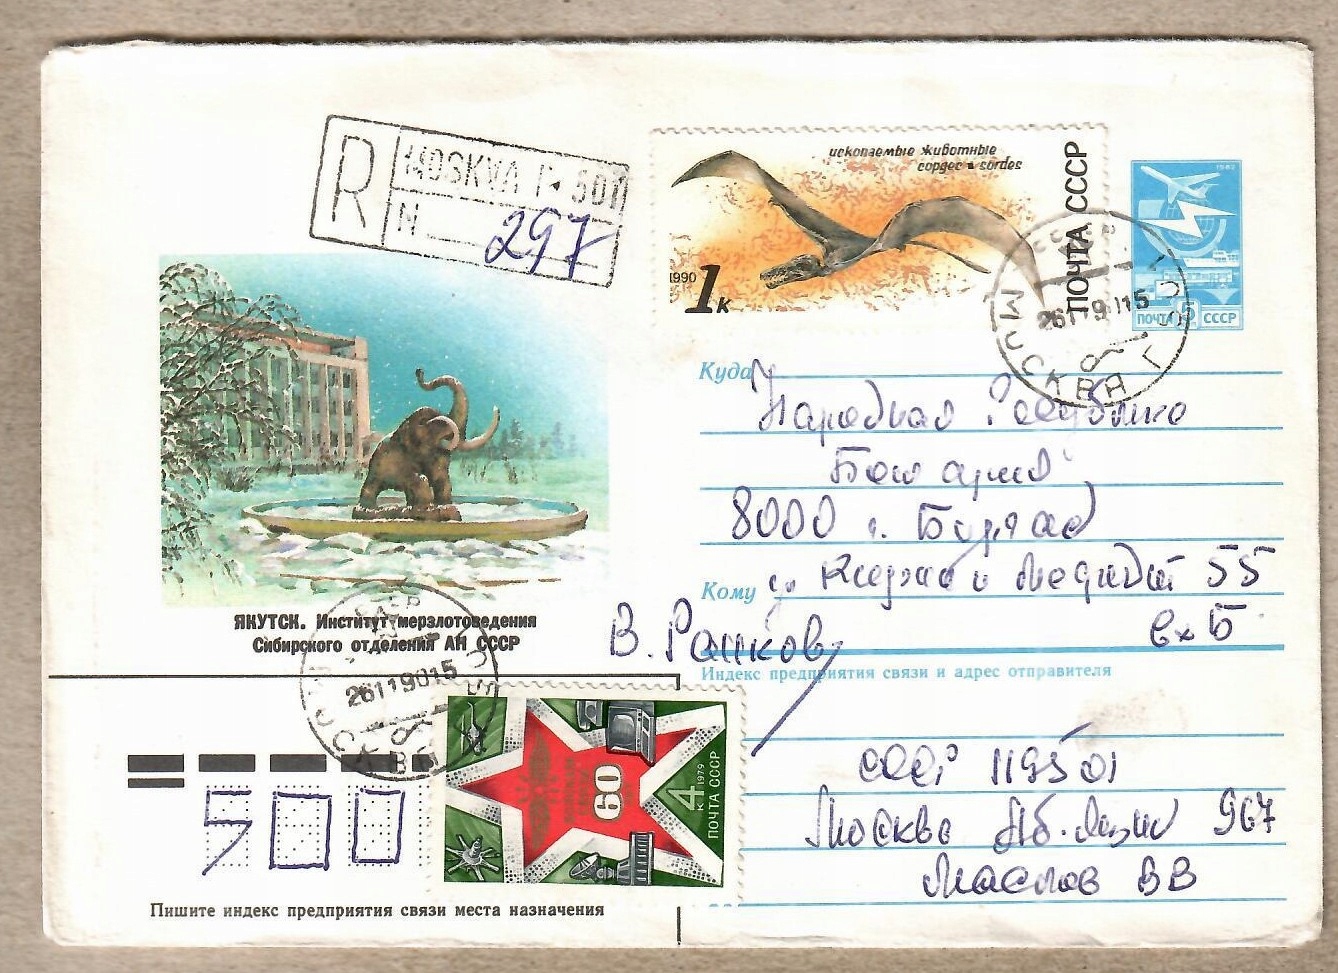 R MOSKVA Г-501
N 297
ископаемые животные
сордес ▪ sordes
ПОЧТА СССР
1990 1к
1982
ПОЧТА 5 СССР
МОСКВА Г-501
26119015
Куда
Народная Республика
Болгария
8000 г. Бургас
Кому
55
В. Райков
вх Б
ЯКУТСК. Институт мерзлотоведения
Сибирского отделения АН СССР
26119015
МОСКВА
Индекс предприятия связи и адрес отправителя
60
4к 1979
ПОЧТА СССР
СССР 119501
Москва Аб. Ящик 967
Маслов ВВ
500
Пишите индекс предприятия связи места назначения